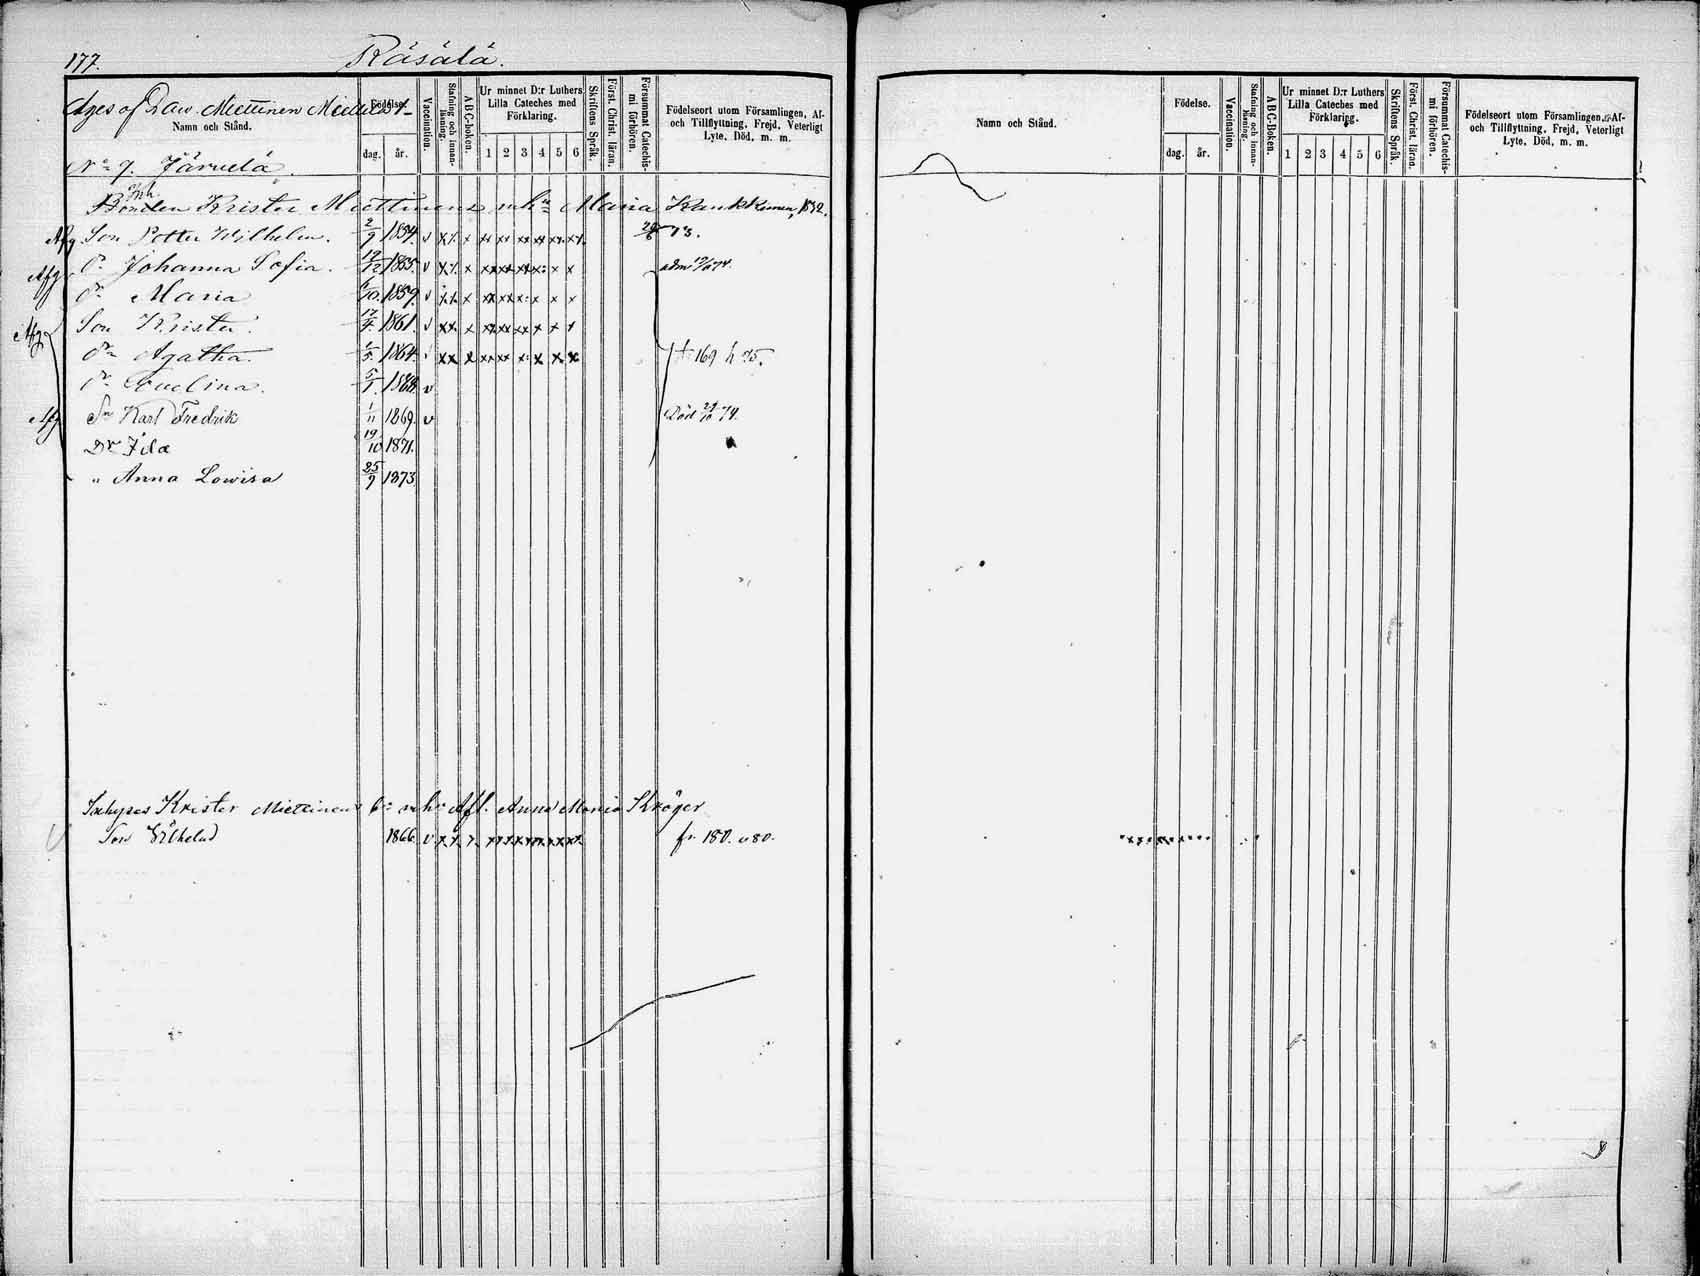 177. Räsälä.
Äges of Daw. Miettinen
Namn och Stånd.
Födelse.
dag. år.
Vaccination.
Stafning och innanläsning.
ABC-boken.
Ur minnet D:r Luthers Lilla Cateches med Förklaring.
1 2 3 4 5 6
Skriftens Språk.
Först. Christ. läran.
Försummat Catechismi förhören.
Födelseort utom Församlingen, Af- och Tillflyttning, Frejd, Veterligt Lyte, Död, m. m.
No 7. Järvelä.
Bonden Krister Miettinens mhu Maria Kankkunen, 1832.
Afg Son Petter Wilhelm. 2/9 1854. v x x x xx xx xx xx xx xx 73.
Afg Dr Johanna Sofia. 12/12 1855. v x x x adm 74.
Dr Maria 6/10 1859. v x x x
Afg Son Krister. 17/4 1861. v x x x
Dr Agatha. 1/5 1864. v x x x 169 h 75.
Dr Evelina. 5/1 1868. v
Afg Sn Karl Fredrik 1/11 1869. v Död 74.
Dr Ida 19/10 1871.
" Anna Lowisa 25/9 1873.
Inhyses Krister Miettinens mhu Afl. Anna Maria Kröger
Son Wilhelm 1866. v x x x fr. 180. v 80.
Namn och Stånd.
Födelse.
dag. år.
Vaccination.
Stafning och innanläsning.
ABC-Boken.
Ur minnet D:r Luthers Lilla Cateches med Förklaring.
1 2 3 4 5 6
Skriftens Språk.
Först. Christ. läran.
Försummat Catechismi förhören.
Födelseort utom Församlingen, Af- och Tillflyttning, Frejd, Veterligt Lyte, Död, m. m.